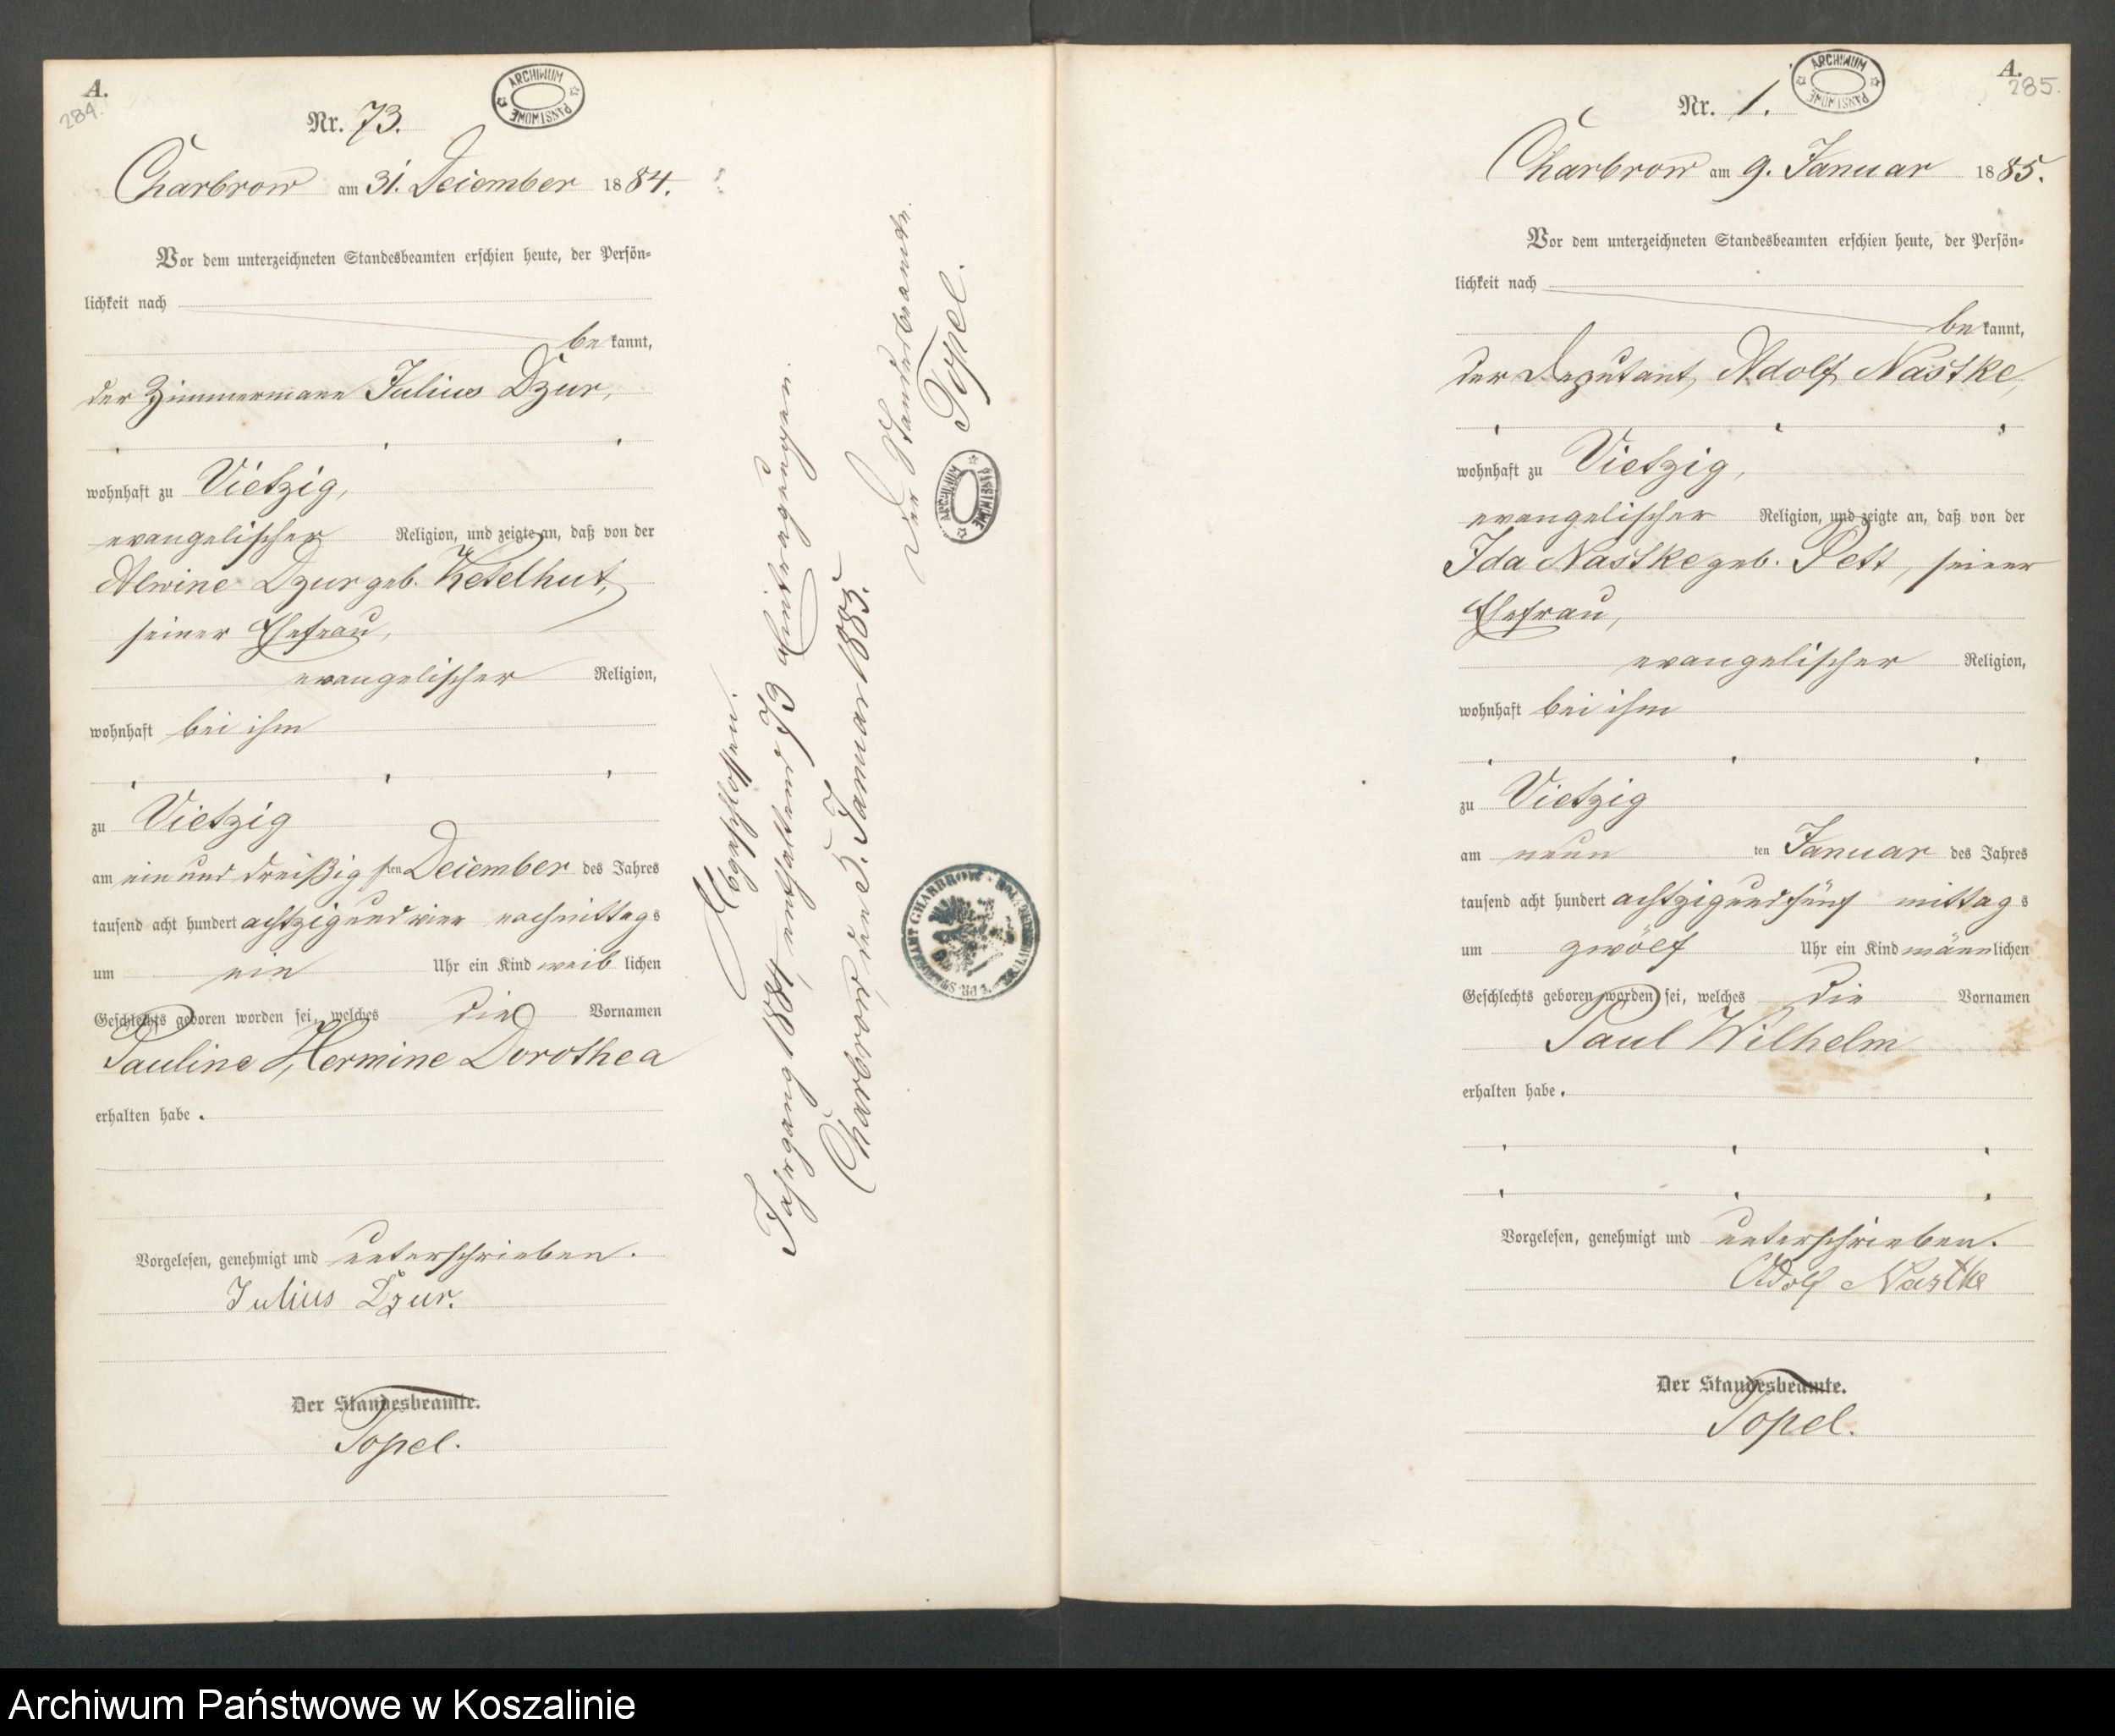 A.
284.
Nr. 73.
ARCHIWUM PAŃSTWOWE
Charbrow am 31. Dezember 1884.
Vor dem unterzeichneten Standesbeamten erschien heute, der Persön-
lichkeit nach
be kannt,
der Zimmermann Julius Dzur,
wohnhaft zu Vietzig,
evangelischer Religion, und zeigte an, daß von der
Alwine Dzur geb. Ketelhut,
seiner Ehefrau,
evangelischer Religion,
wohnhaft bei ihm
zu Vietzig
am ein und dreißig sten Dezember des Jahres
tausend acht hundert achtzig und vier nachmittags
um ein Uhr ein Kind weib lichen
Geschlechts geboren worden sei, welches die Vornamen
Pauline Hermine Dorothea
erhalten habe.
Vorgelesen, genehmigt und unterschrieben.
Julius Dzur.
Der Standesbeamte.
Topel.
Abgeschlossen.
Jahrgang 1884, enthaltend 73 Eintragungen.
Charbrow, den 5. Januar 1885.
Der Standesbeamte.
Topel.
ARCHIWUM PAŃSTWOWE
STANDESAMT CHARBROW
A.
285.
Nr. 1.
ARCHIWUM PAŃSTWOWE
Charbrow am 9. Januar 1885.
Vor dem unterzeichneten Standesbeamten erschien heute, der Persön-
lichkeit nach
be kannt,
der Deputant, Adolf Nastke,
wohnhaft zu Vietzig,
evangelischer Religion, und zeigte an, daß von der
Ida Nastke geb. Pett, seiner
Ehefrau,
evangelischer Religion,
wohnhaft bei ihm
zu Vietzig
am neun ten Januar des Jahres
tausend acht hundert achtzig und fünf mittag s
um zwölf Uhr ein Kind männlichen
Geschlechts geboren worden sei, welches die Vornamen
Paul Wilhelm
erhalten habe.
Vorgelesen, genehmigt und unterschrieben.
Adolf Nastke
Der Standesbeamte.
Topel.
Archiwum Państwowe w Koszalinie